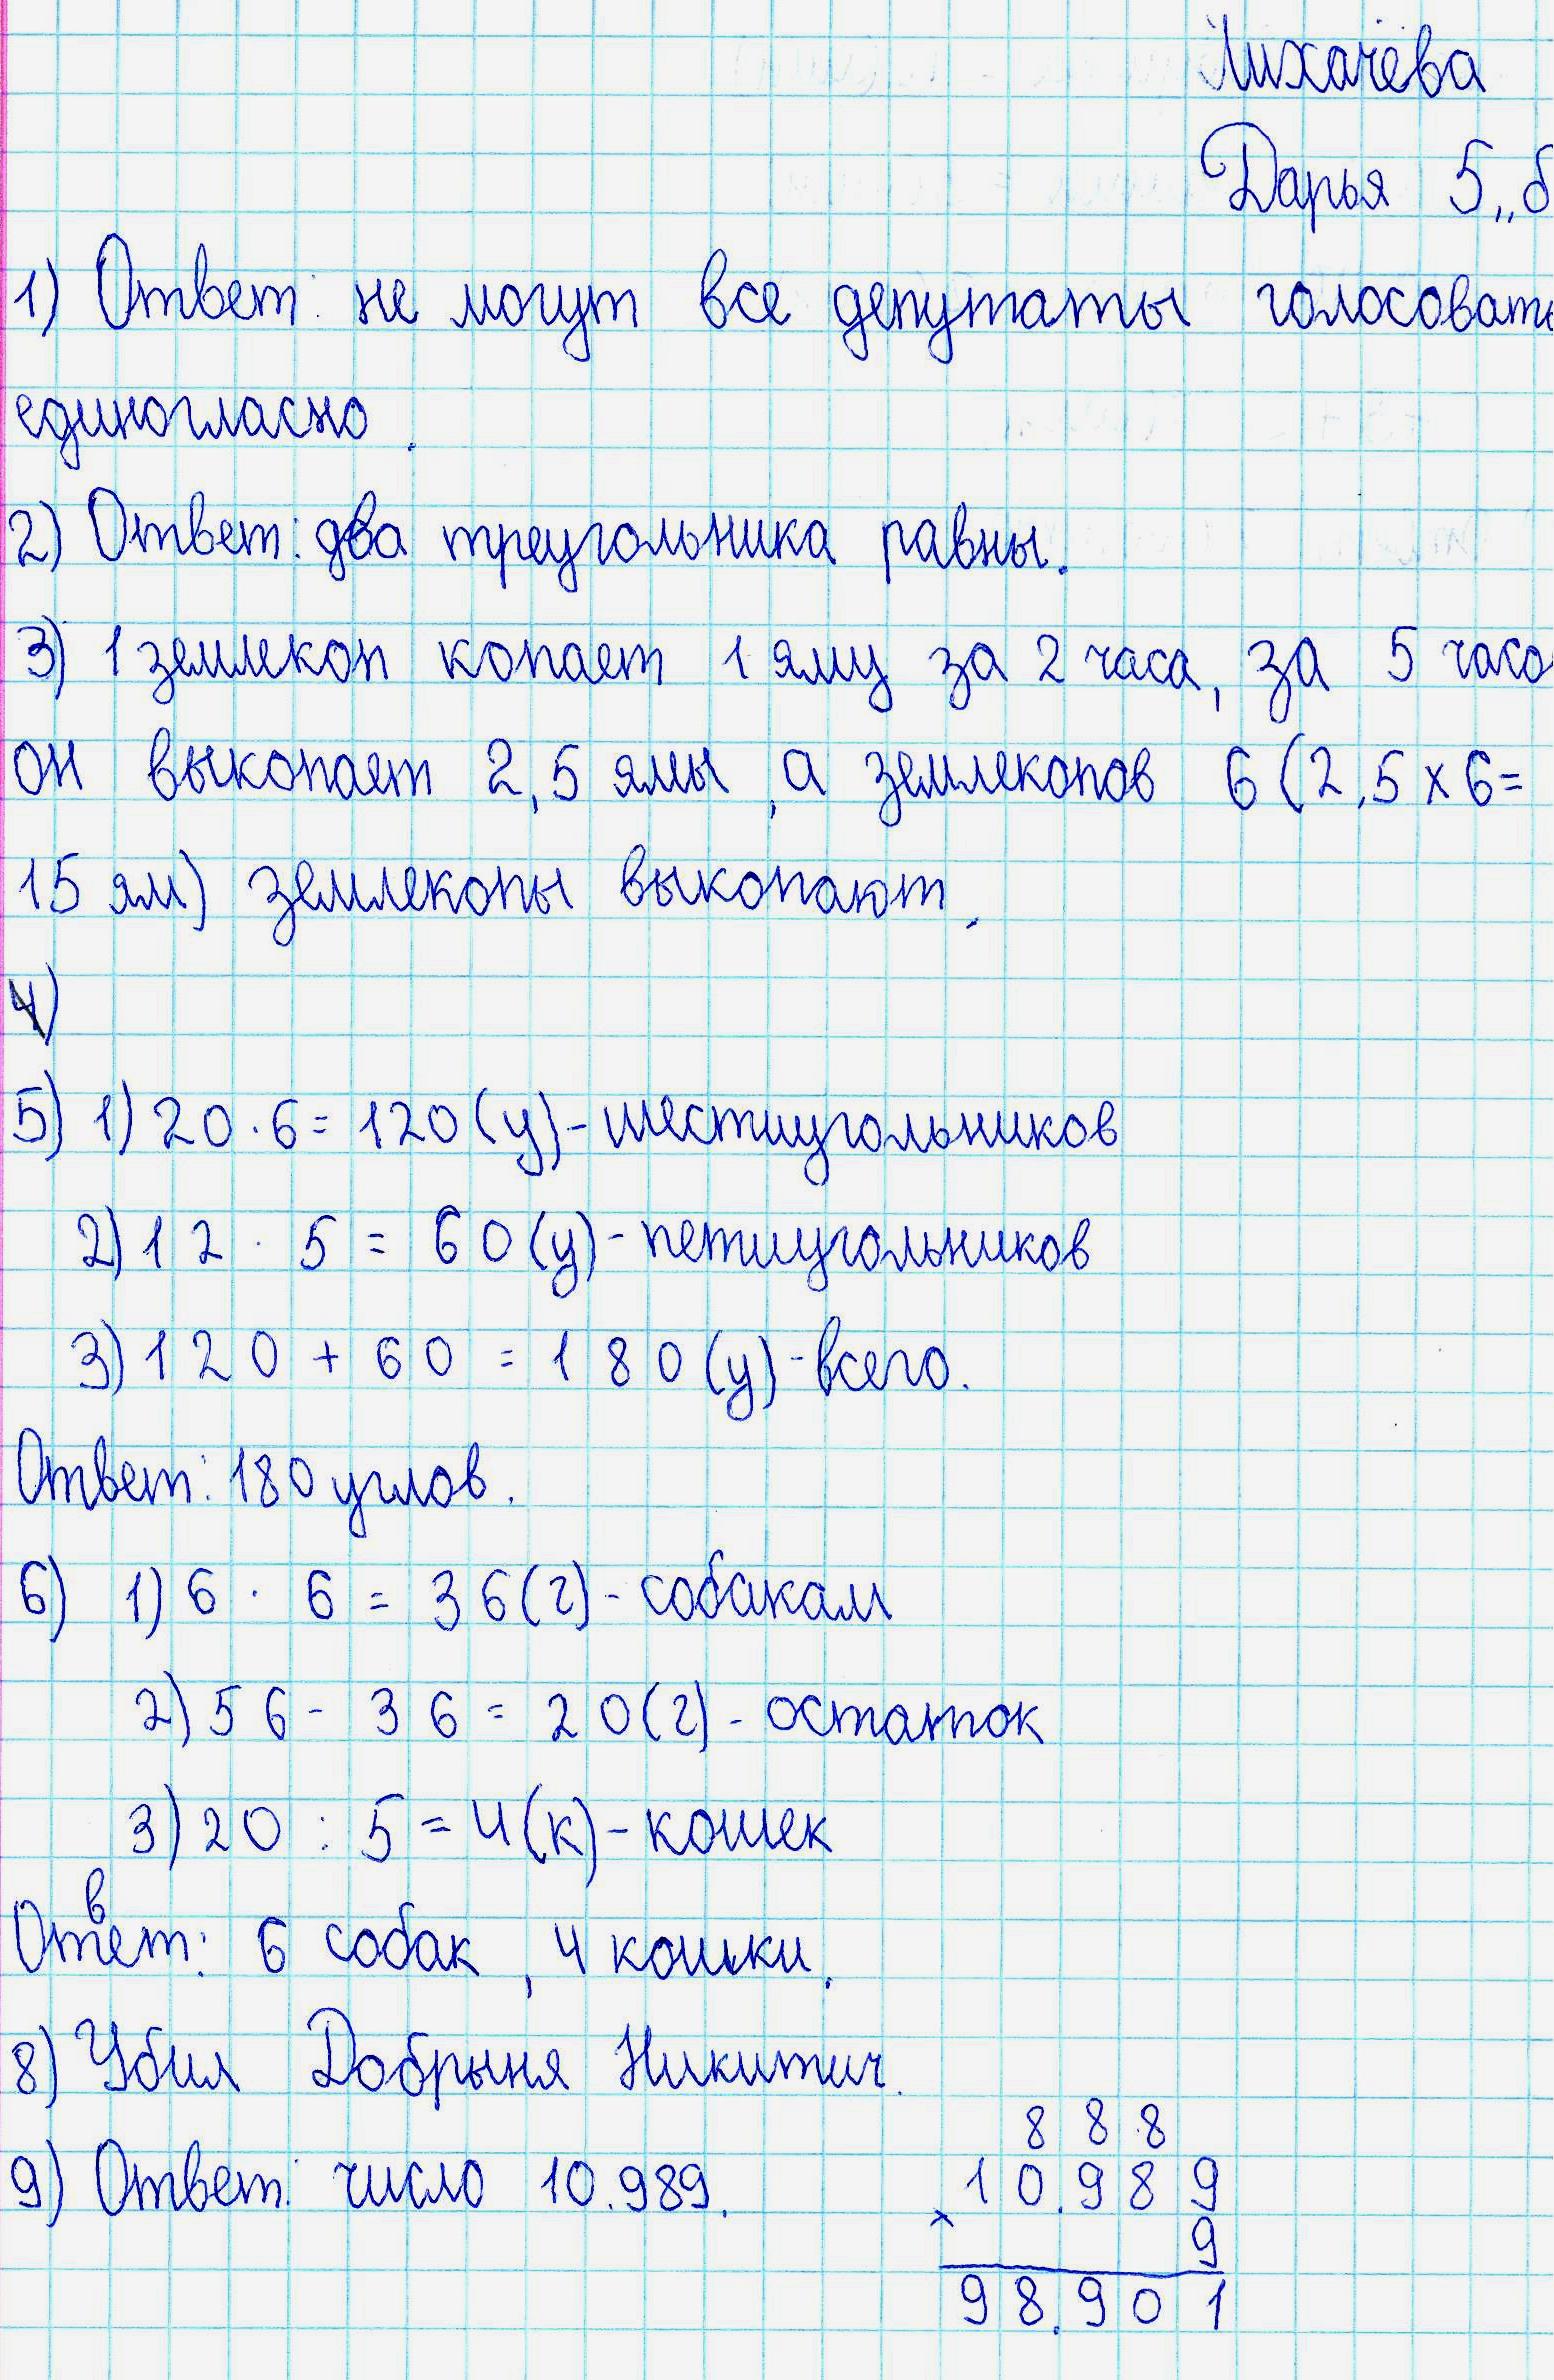 Лихачёва
Дарья 5 „б
1) Ответ: не могут все депутаты голосовать
единогласно.
2) Ответ: два треугольника равны.
3) 1 землекоп копает 1 яму за 2 часа, за 5 часов
он выкопает 2,5 ямы, а землекопов 6 (2,5 x 6 =
15 ям) землекопы выкопают.
4)
5) 1) 20 · 6 = 120 (у) - шестиугольников
2) 12 · 5 = 60 (у) - петиугольников
3) 120 + 60 = 180 (у) - всего.
Ответ: 180 углов.
6) 1) 6 · 6 = 36 (г) - собакам
2) 56 - 36 = 20 (г) - остаток
3) 20 : 5 = 4 (к) - кошек
Ответ: 6 собак, 4 кошки.
8) Убил Добрыня Никитич.
9) Ответ: число 10.989.
8 8 8
10.989
x 9
98.901